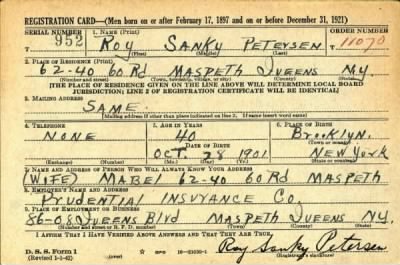 REGISTRATION CARD—(Men born on or after February 17, 1897 and on or before December 31, 1921)
SERIAL NUMBER 1. NAME (Print) ORDER NUMBER
952 Roy Sanky Petersen 11070
(First) (Middle) (Last)
2. PLACE OF RESIDENCE (Print)
62-40 60 Rd Maspeth Queens N.Y.
(Number and street) (Town, township, village, or city) (County) (State)
[THE PLACE OF RESIDENCE GIVEN ON THE LINE ABOVE WILL DETERMINE LOCAL BOARD
JURISDICTION; LINE 2 OF REGISTRATION CERTIFICATE WILL BE IDENTICAL]
3. MAILING ADDRESS
SAME
[Mailing address if other than place indicated on line 2. If same insert word same]
4. TELEPHONE 5. AGE IN YEARS 6. PLACE OF BIRTH
NONE 40 Brooklyn.
DATE OF BIRTH (Town or county)
OCT. 28 1901 New York
(Exchange) (Number) (Mo.) (Day) (Yr.) (State or country)
7. NAME AND ADDRESS OF PERSON WHO WILL ALWAYS KNOW YOUR ADDRESS
(WIFE) MABEL 62-40 60 Rd MASPETH
8. EMPLOYER'S NAME AND ADDRESS
Prudential Insurance Co.
9. PLACE OF EMPLOYMENT OR BUSINESS
86-08 Queens Blvd Maspeth Queens N.Y.
(Number and street or R. F. D. number) (Town) (County) (State)
I AFFIRM THAT I HAVE VERIFIED ABOVE ANSWERS AND THAT THEY ARE TRUE.
D. S. S. Form 1
(Revised 1-1-42) GPO Roy Sanky Petersen
(Registrant's signature)